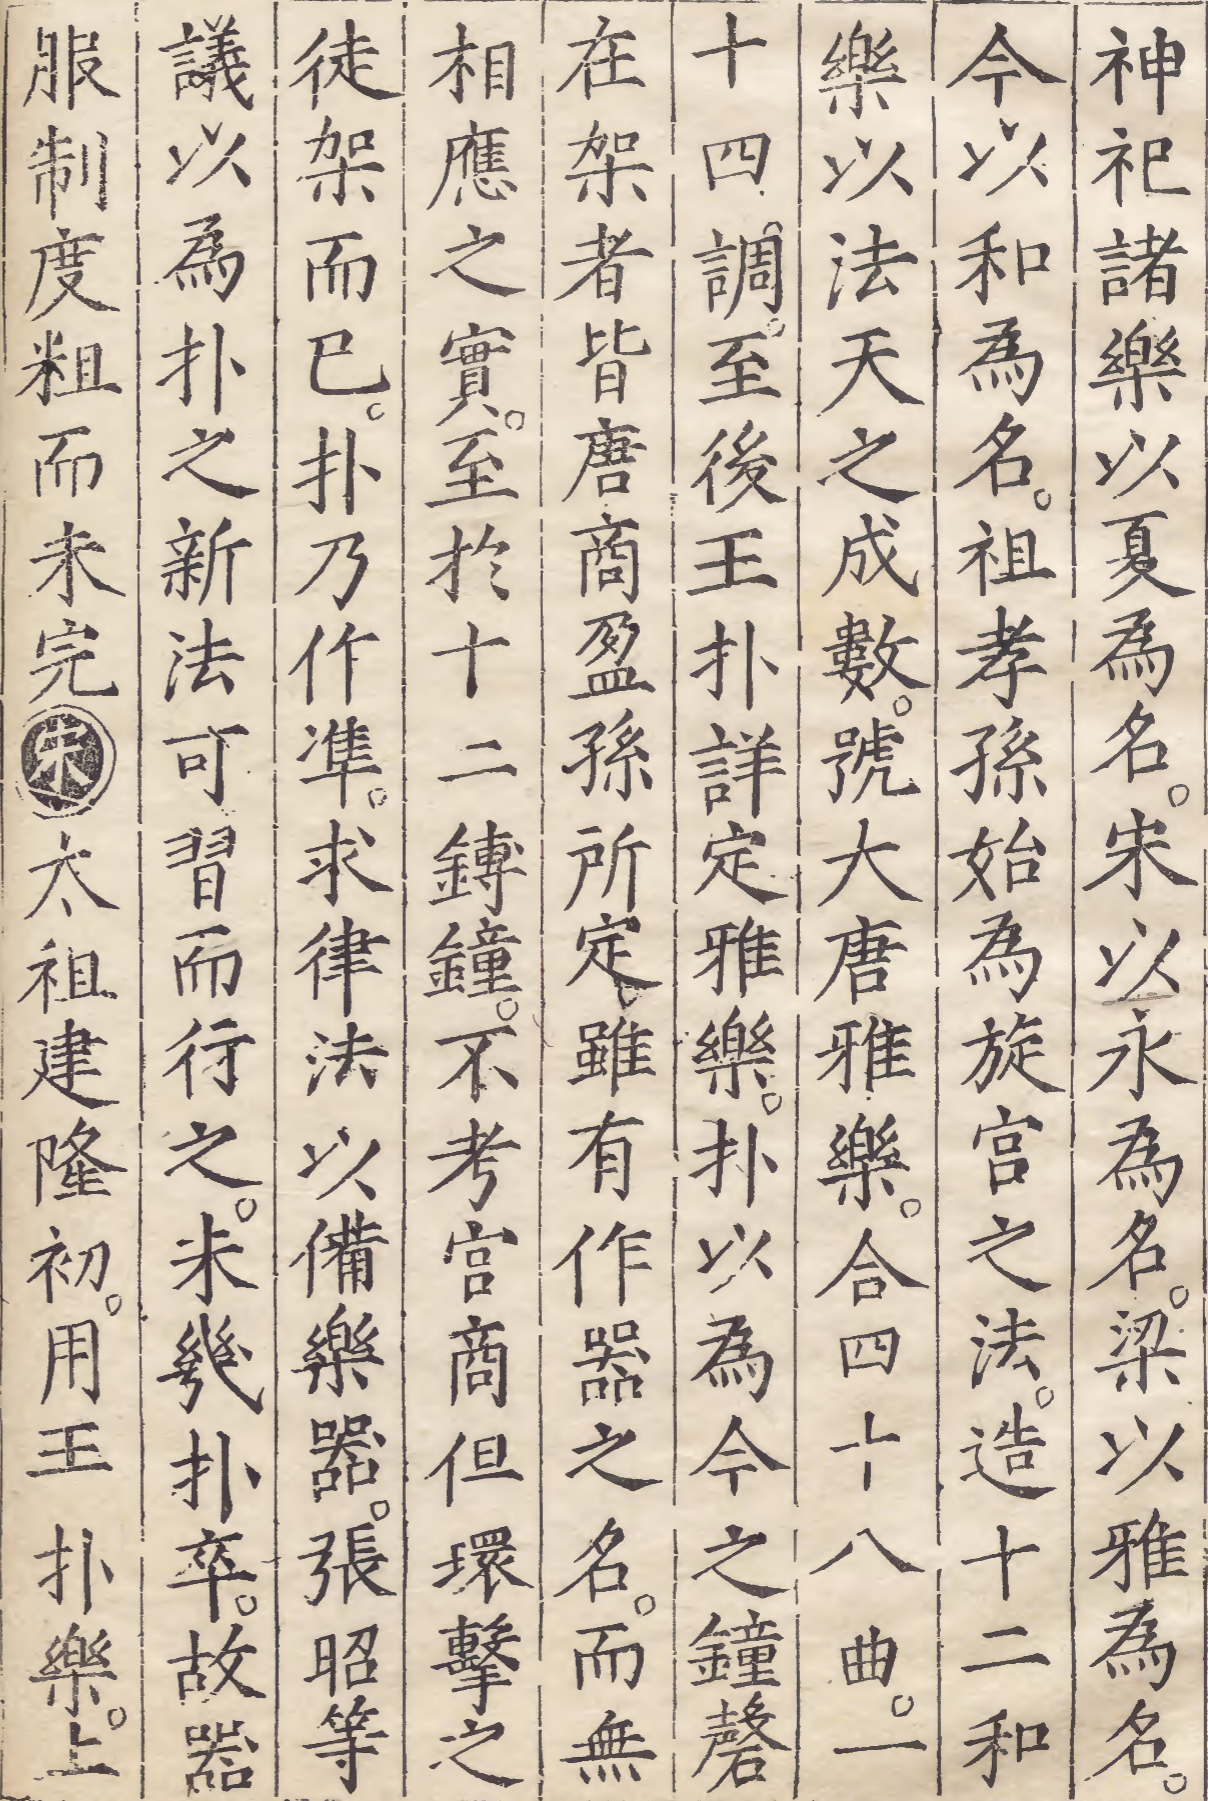 神祀諸樂以夏為名。宋以永為名。梁以雅為名。
今以和為名。祖孝孫始為旋宮之法。造十二和
樂以法天之成數。號大唐雅樂。合四十八曲。一
十四調。至後王扑詳定雅樂。扑以為今之鐘磬
在架者皆唐商盈孫所定。雖有作器之名。而無
相應之實。至於十二鎛鐘。不考宮商但環擊之
徒架而已。扑乃作準。求律法以備樂器。張昭等
議以為扑之新法可習而行之。未幾扑卒。故器
服制度粗而未完宋太祖建隆初。用王扑樂。上